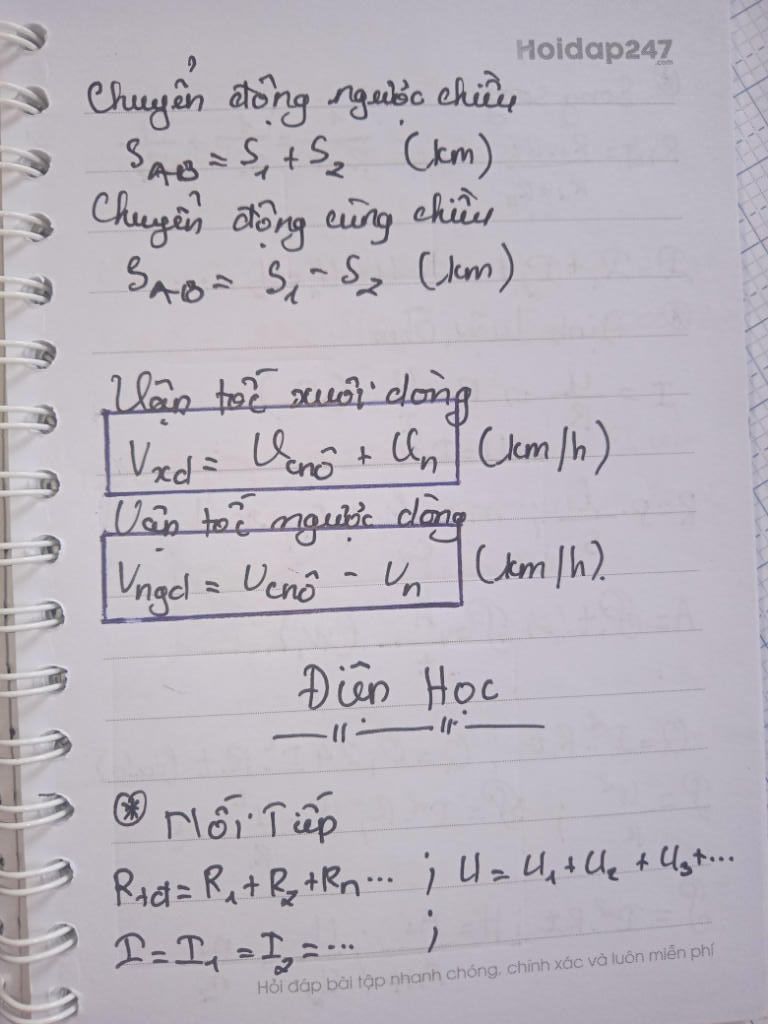 Hoidap247
.com
Chuyển động ngược chiều
S_AB = S_1 + S_2 (km)
Chuyển động cùng chiều
S_AB = S_1 - S_2 (km)
Vận tốc xuôi dòng
V_xd = V_cnô + V_n (km/h)
Vận tốc ngược dòng
V_ngd = V_cnô - V_n (km/h).
Điện Học
* Nối Tiếp
R_tđ = R_1 + R_2 + R_n ... ; U = U_1 + U_2 + U_3 + ...
I = I_1 = I_2 = ... ;
Hỏi đáp bài tập nhanh chóng, chính xác và luôn miễn phí